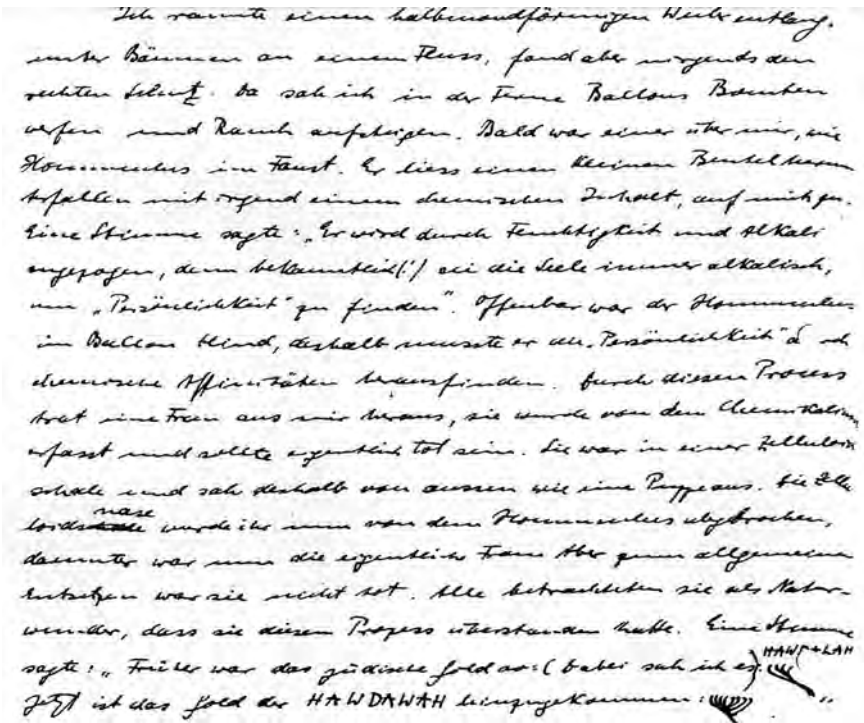 Ich rannte einen halbmondförmigen Weiher entlang,
unter Bäumen an einem Fluss, fand aber nirgends den
rechten Schutz. Da sah ich in der Ferne Ballons Bomben
werfen und Rauch aufsteigen. Bald war einer über mir, wie
Homunculus im Faust. Er liess einen kleinen Beutel herun
terfallen mit irgend einem chemischen Inhalt, auf mich zu.
Eine Stimme sagte: „Er wird durch Feuchtigkeit und Alkali
angezogen, denn bekanntlich(!) sei die Seele immer alkalisch,
um „Persönlichkeit" zu finden". Offenbar war der Homunculus
im Ballon blind, deshalb musste er die „Persönlichkeit"
chemische Affinitäten herausfinden. Durch diesen Process
trat eine Frau aus mir heraus, sie wurde von den Chemikalien
erfasst und sollte eigentlich tot sein. Sie war in einer Zelluloid
schale und sah deshalb von aussen wie eine Puppe aus. Die Zellu
loidschale nase wurde ihr nun von dem Homunculus abgebrochen,
darunter war nun die eigentliche Frau. Aber zum allgemeinen
Entsetzen war sie nicht tot. Alle betrachteten sie als Natur-
wunder, dass sie diesen Prozess überstanden hatte. Eine Stimme
sagte: „Früher war das jüdische Gold so: (dabei sah ich es
Jetzt ist das Gold der HAWDAWAH hinzugekommen: "